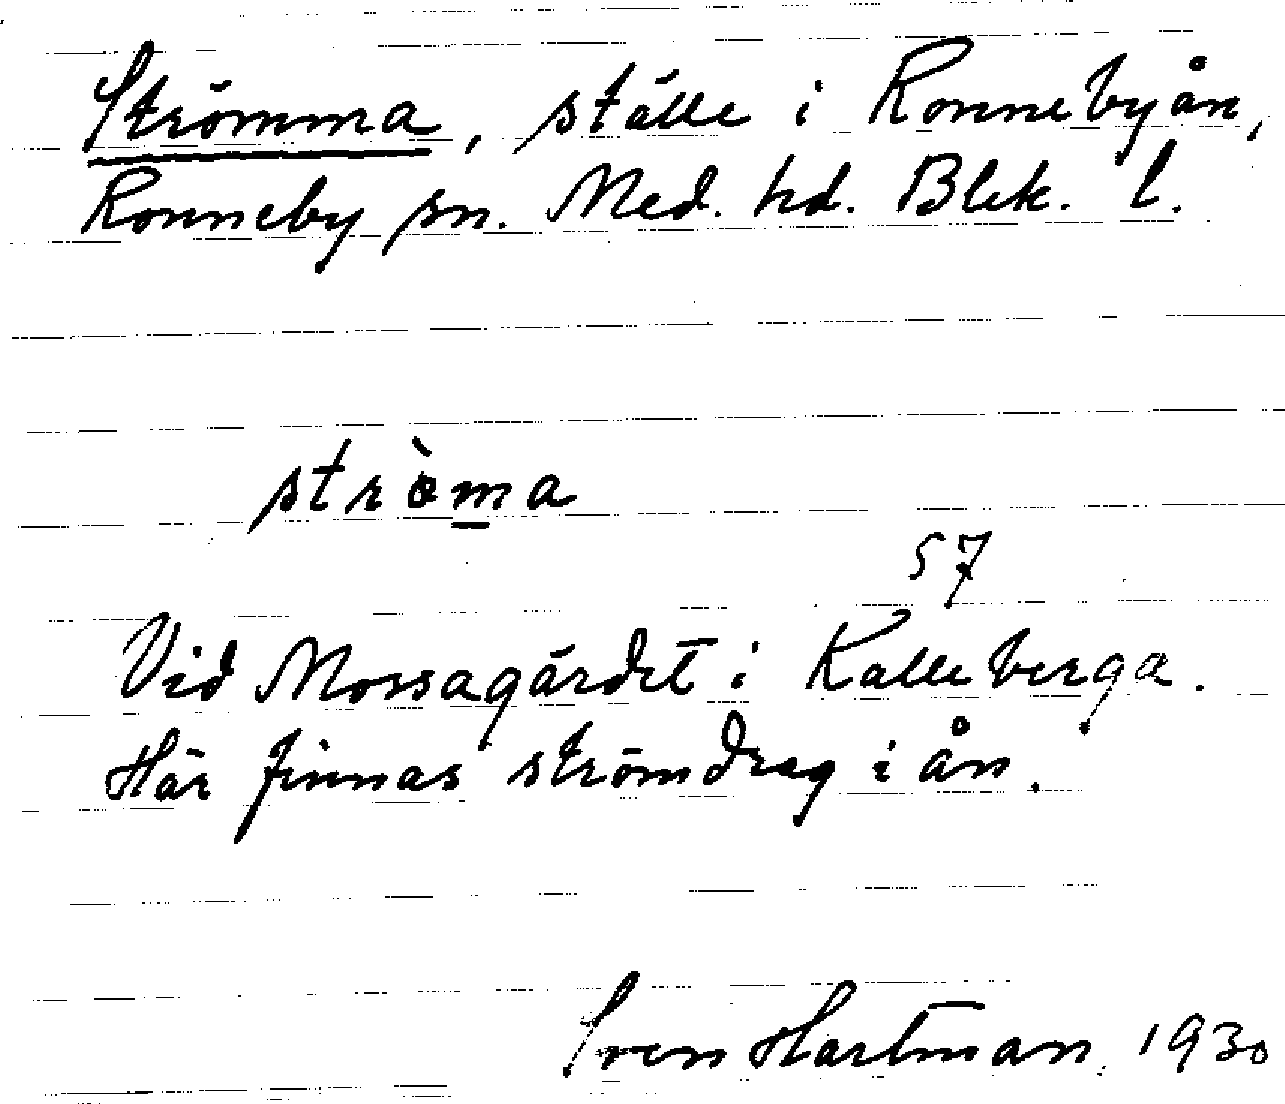 Strömma, ställe i Ronnebyån,
Ronneby sn. Med. hd. Blek. l.
strò̈m̲a
57
Vid Mossagärdet i Kalleberga.
Här finnas strömdrag i ån.
Sven Hartman. 1930